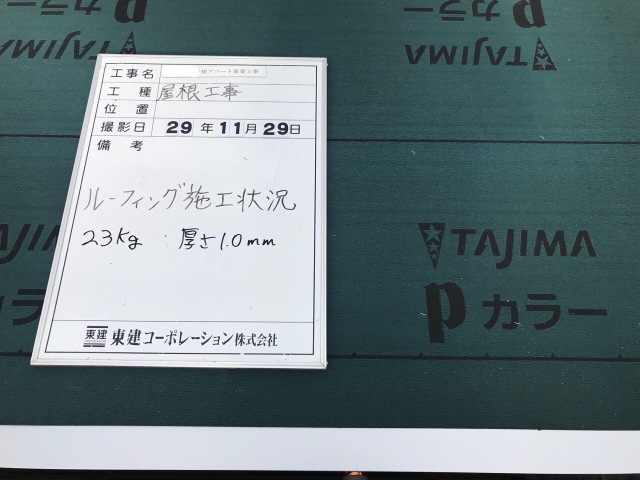 pカラー
TAJIMA
工事名 様アパート新築工事
工種 屋根工事
位置
撮影日 29年11月29日
備考
ルーフィング施工状況
23kg 厚さ1.0mm
東建 東建コーポレーション株式会社
TAJIMA
pカラー